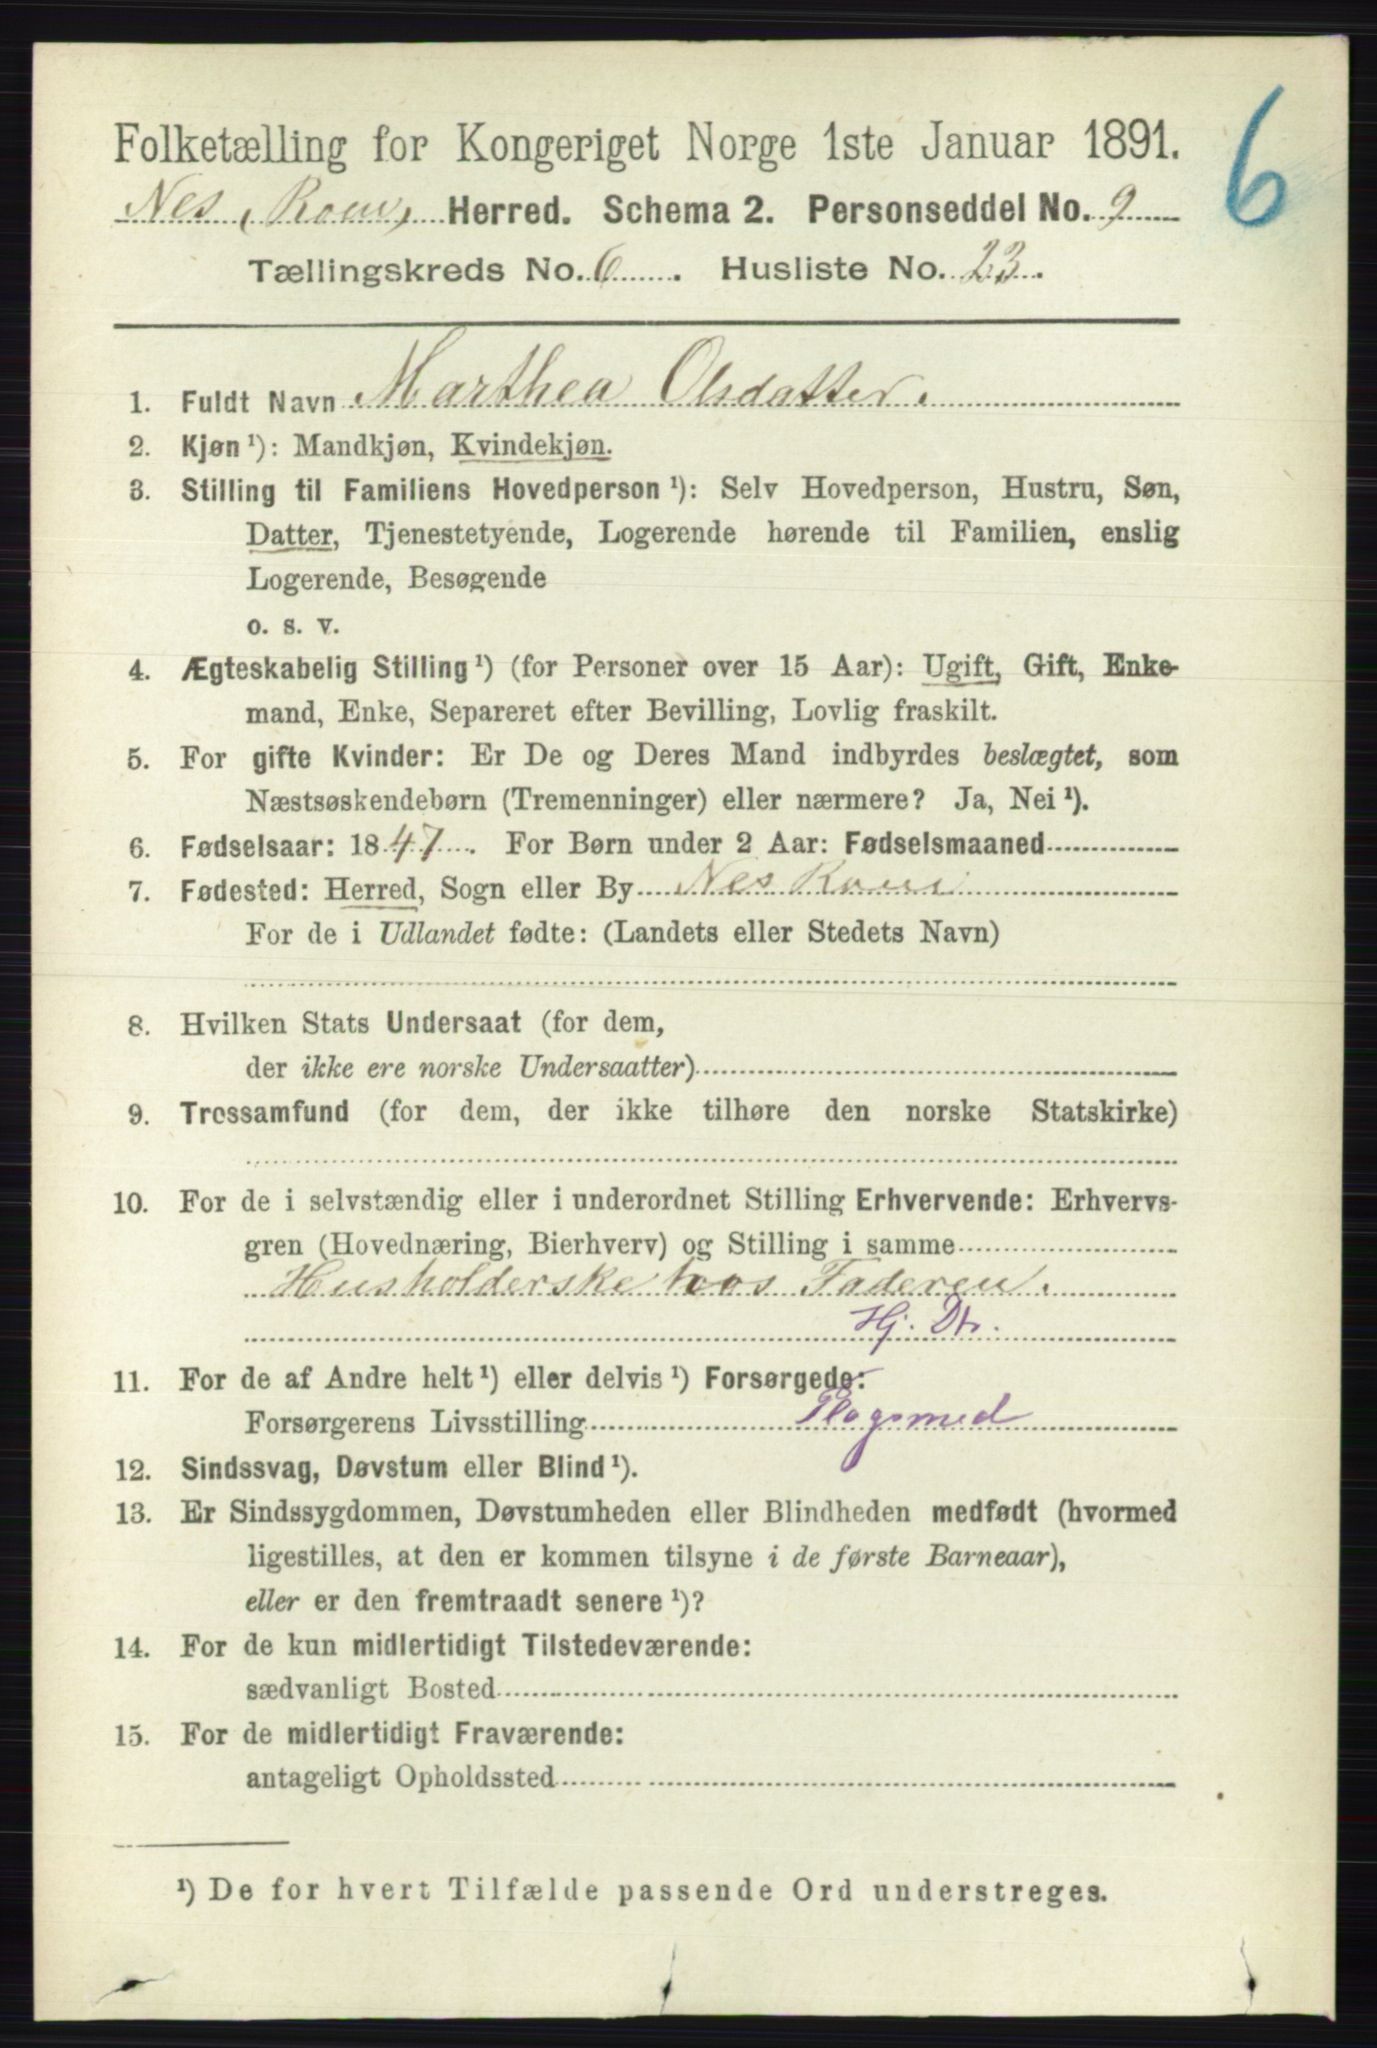 6
Folketælling for Kongeriget Norge 1ste Januar 1891.
Nes, Rom, Herred. Schema 2. Personseddel No. 9
Tællingskreds No. 6. Husliste No. 23.
1. Fuldt Navn Marthea Olsdatter.
2. Kjøn¹): Mandkjøn, Kvindekjøn.
3. Stilling til Familiens Hovedperson¹): Selv Hovedperson, Hustru, Søn,
Datter, Tjenestetyende, Logerende hørende til Familien, enslig
Logerende, Besøgende
o. s. v.
4. Ægteskabelig Stilling¹) (for Personer over 15 Aar): Ugift, Gift, Enke-
mand, Enke, Separeret efter Bevilling, Lovlig fraskilt.
5. For gifte Kvinder: Er De og Deres Mand indbyrdes beslægtet, som
Næstsøskendebørn (Tremenninger) eller nærmere? Ja, Nei¹).
6. Fødselsaar: 1847. For Børn under 2 Aar: Fødselsmaaned
7. Fødested: Herred, Sogn eller By Nes Rom
For de i Udlandet fødte: (Landets eller Stedets Navn)
8. Hvilken Stats Undersaat (for dem,
der ikke ere norske Undersaatter)
9. Trossamfund (for dem, der ikke tilhøre den norske Statskirke)
10. For de i selvstændig eller i underordnet Stilling Erhvervende: Erhvervs-
gren (Hovednæring, Bierhverv) og Stilling i samme
Husholderske hos Faderen.
Hj. Dtr.
11. For de af Andre helt¹) eller delvis¹) Forsørgede:
Forsørgerens Livsstilling
12. Sindssvag, Døvstum eller Blind¹).
13. Er Sindssygdommen, Døvstumheden eller Blindheden medfødt (hvormed
ligestilles, at den er kommen tilsyne i de første Barneaar),
eller er den fremtraadt senere¹)?
14. For de kun midlertidigt Tilstedeværende:
sædvanligt Bosted
15. For de midlertidigt Fraværende:
antageligt Opholdssted
¹) De for hvert Tilfælde passende Ord understreges.